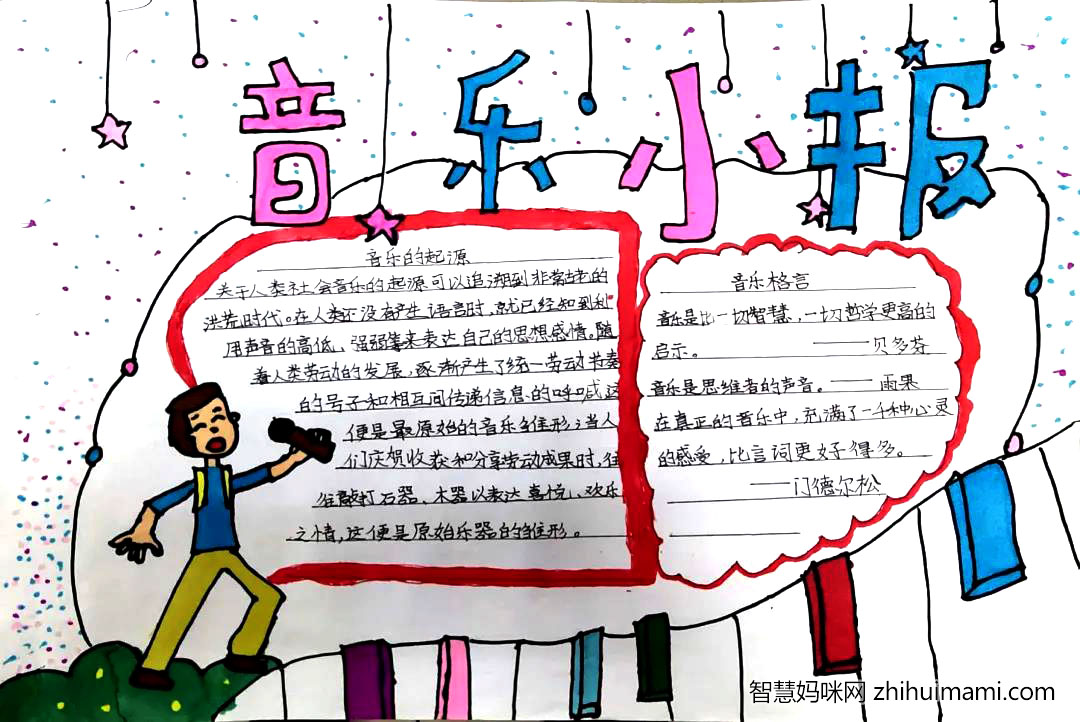 音乐小报
音乐的起源
关于人类社会音乐的起源可以追溯到非常古老的
洪荒时代。在人类还没有产生语言时,就已经知到利
用声音的高低、强弱等来表达自己的思想感情。随
着人类劳动的发展,逐渐产生了统一劳动节奏
的号子和相互间传递信息的呼喊这
便是最原始的音乐雏形;当人
们庆贺收获和分享劳动成果时,往
往敲打石器、木器以表达喜悦、欢乐
之情,这便是原始乐器的雏形。
音乐格言
音乐是比一切智慧,一切哲学更高的
启示。——贝多芬
音乐是思维者的声音。——雨果
在真正的音乐中,充满了一千种心灵
的感受,比言词更好得多。
——门德尔松
智慧妈咪网 zhihuimami.com